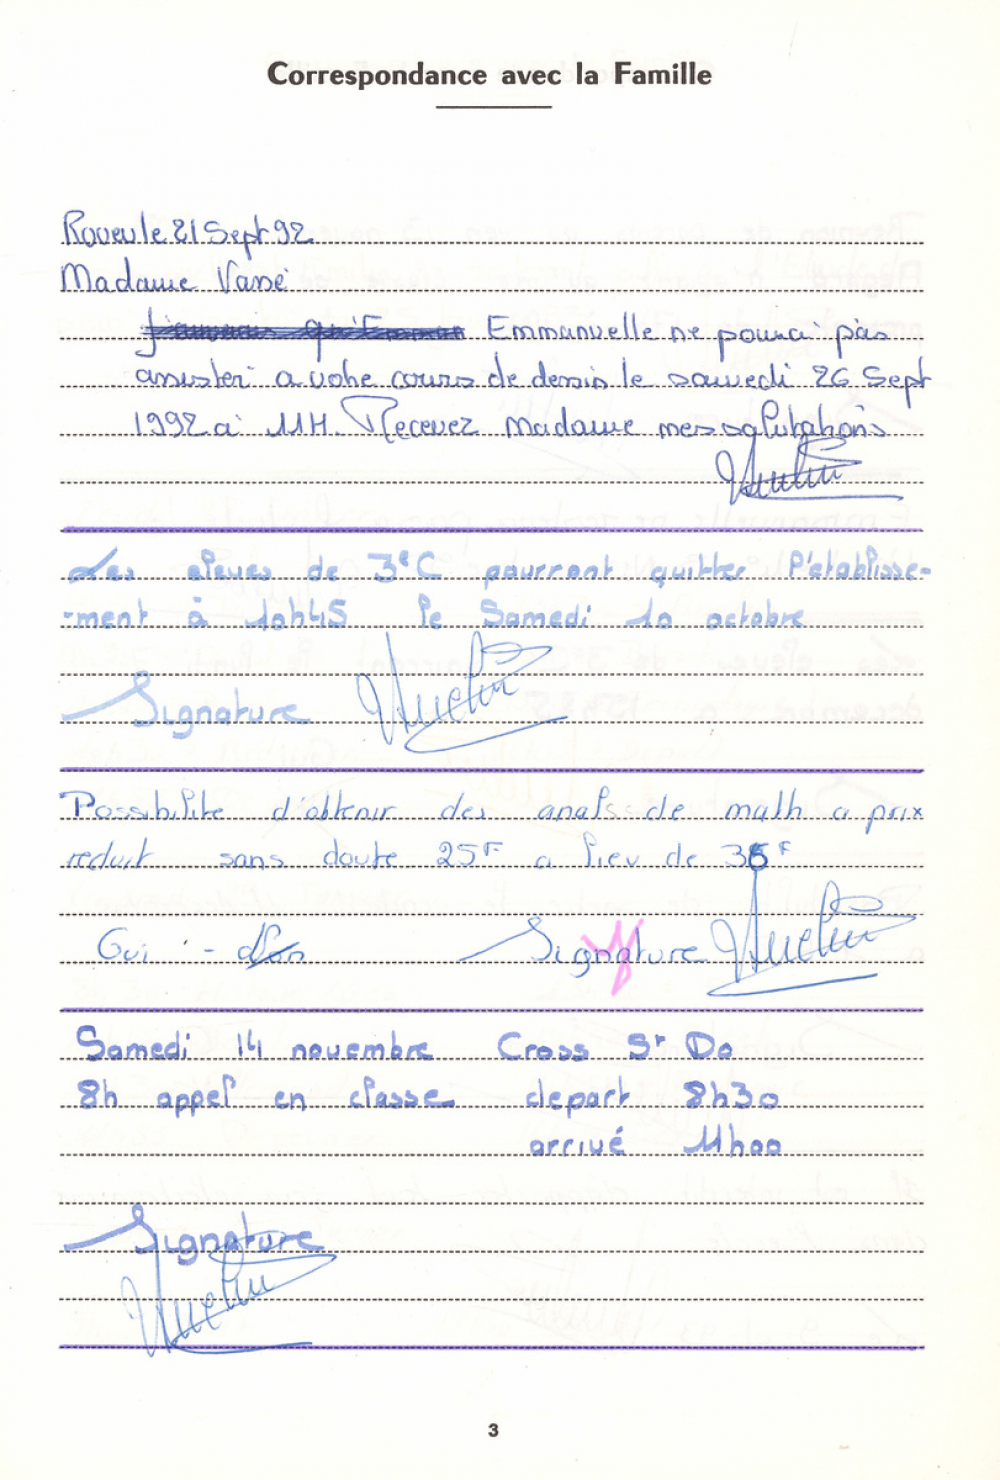 Correspondance avec la Famille
le 21 Sept 92
Madame Vassé
Emmanuelle ne pourrai pas
assister a votre cours de dessin le samedi 26 Sept
1992 a 11H. Recevez Madame mes salutations
Les eleves de 3eC pourront quitter l'etablisse-
-ment à 10h45 le Samedi 10 octobre
Signature
Possibilite d'obtenir des anals de math a prix
reduit sans doute 25F a lieu de 36F
Oui - Non Signature
Samedi 14 novembre Cross St Do
8h appel en classe depart 8h30
arrivé 11h00
Signature
3